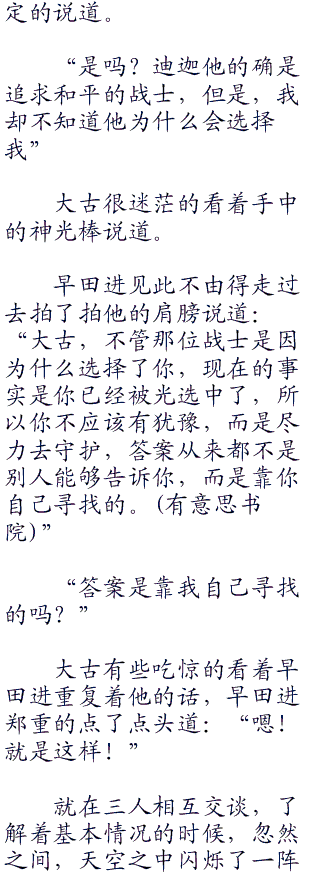 定的说道。
“是吗？迪迦他的确是
追求和平的战士，但是，我
却不知道他为什么会选择
我”
大古很迷茫的看着手中
的神光棒说道。
早田进见此不由得走过
去拍了拍他的肩膀说道：
“大古，不管那位战士是因
为什么选择了你，现在的事
实是你已经被光选中了，所
以你不应该有犹豫，而是尽
力去守护，答案从来都不是
别人能够告诉你，而是靠你
自己寻找的。(有意思书
院)”
“答案是靠我自己寻找
的吗？”
大古有些吃惊的看着早
田进重复着他的话，早田进
郑重的点了点头道：“嗯！
就是这样！”
就在三人相互交谈，了
解着基本情况的时候，忽然
之间，天空之中闪烁了一阵